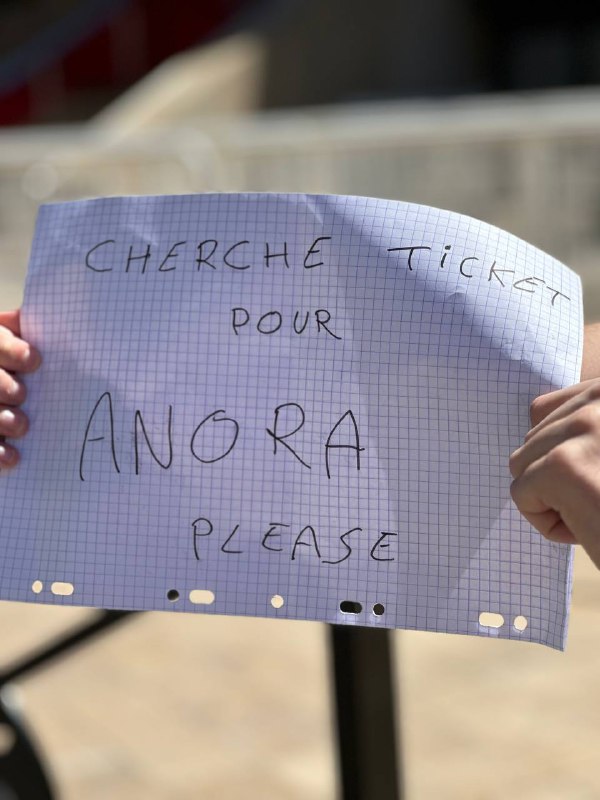 CHERCHE TICKET
POUR
ANORA
PLEASE